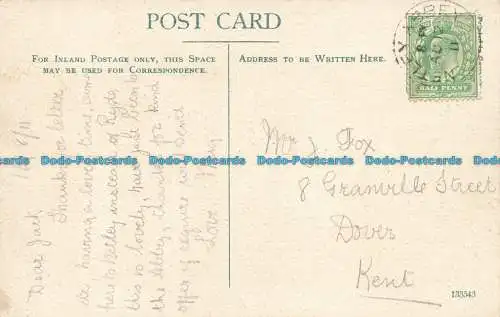 POST CARD
FOR INLAND POSTAGE ONLY, THIS SPACE
MAY BE USED FOR CORRESPONDENCE.
ADDRESS TO BE WRITTEN HERE.
HALF PENNY
Dear Jack
Thanks for letter
having a lovely time, came
here to instead of Ryde,
this so lovely, have just been to
the Abbey, thanks for kind
offer if require will send
Love
Mr J. Fox
8 Granville Street
Dover
Kent
133543
Dodo-Postcards Dodo-Postcards Dodo-Postcards Dodo-Postcards